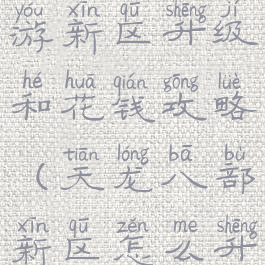 yóu xīn qū shēng jí
游新区升级
hé huā qián gōng lüè
和花钱攻略
tiān lóng bā bù
（天龙八部
xīn qū zěn me shēng
新区怎么升